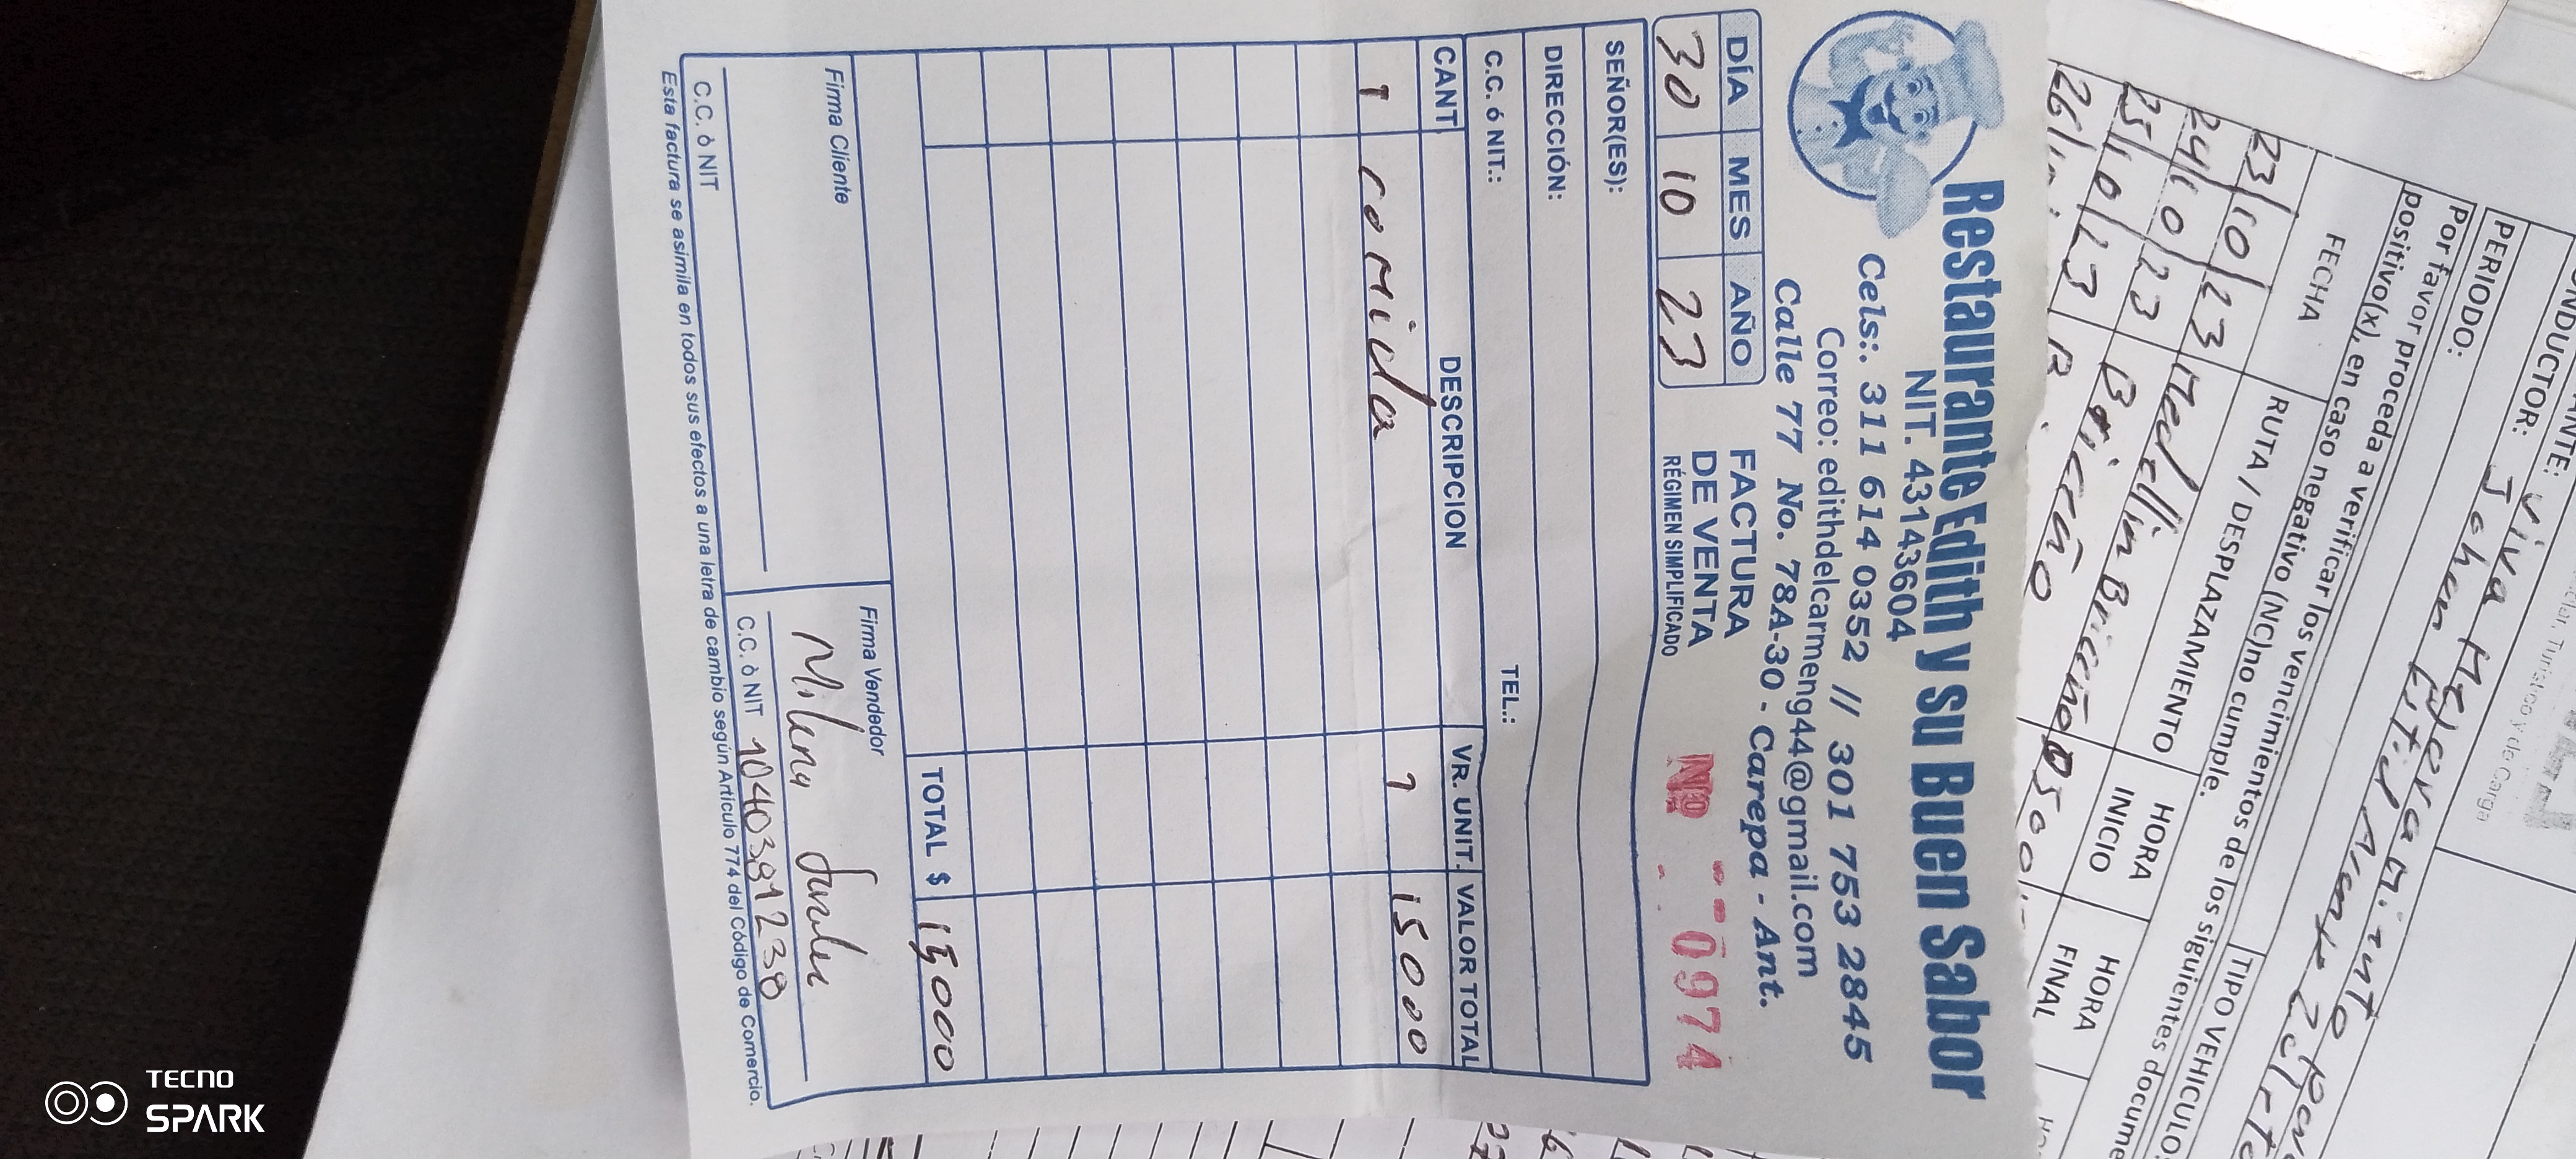 Restaurante Edith y su Buen Sabor
NIT. 43143604
Cels:. 311 614 0352 // 301 753 2845
Correo: edithdelcarmeng44@gmail.com
Calle 77 No. 78A-30 - Carepa - Ant.
DÍA MES AÑO
30 10 23
FACTURA
DE VENTA
RÉGIMEN SIMPLIFICADO
Nº 0974
SEÑOR(ES):
DIRECCIÓN:
C.C. ó NIT.: TEL.:
CANT DESCRIPCION VR. UNIT. VALOR TOTAL
1 comida 1 15000
TOTAL $ 15000
Firma Cliente
Firma Vendedor
Milena
C.C. ò NIT
C.C. ò NIT 1040391238
Esta factura se asimila en todos sus efectos a una letra de cambio según Artículo 774 del Código de Comercio.
NDUCTOR:
PERIODO:
Por favor proceda a verificar los vencimientos de los siguientes docume
positivo(x), en caso negativo (NC)no cumple.
TIPO VEHICULO:
FECHA RUTA / DESPLAZAMIENTO HORA INICIO HORA FINAL
23/10/23 Medellin Briceño 0500
24/10/23 Briceño
25/10/23 B.
26/
TECNO
SPARK